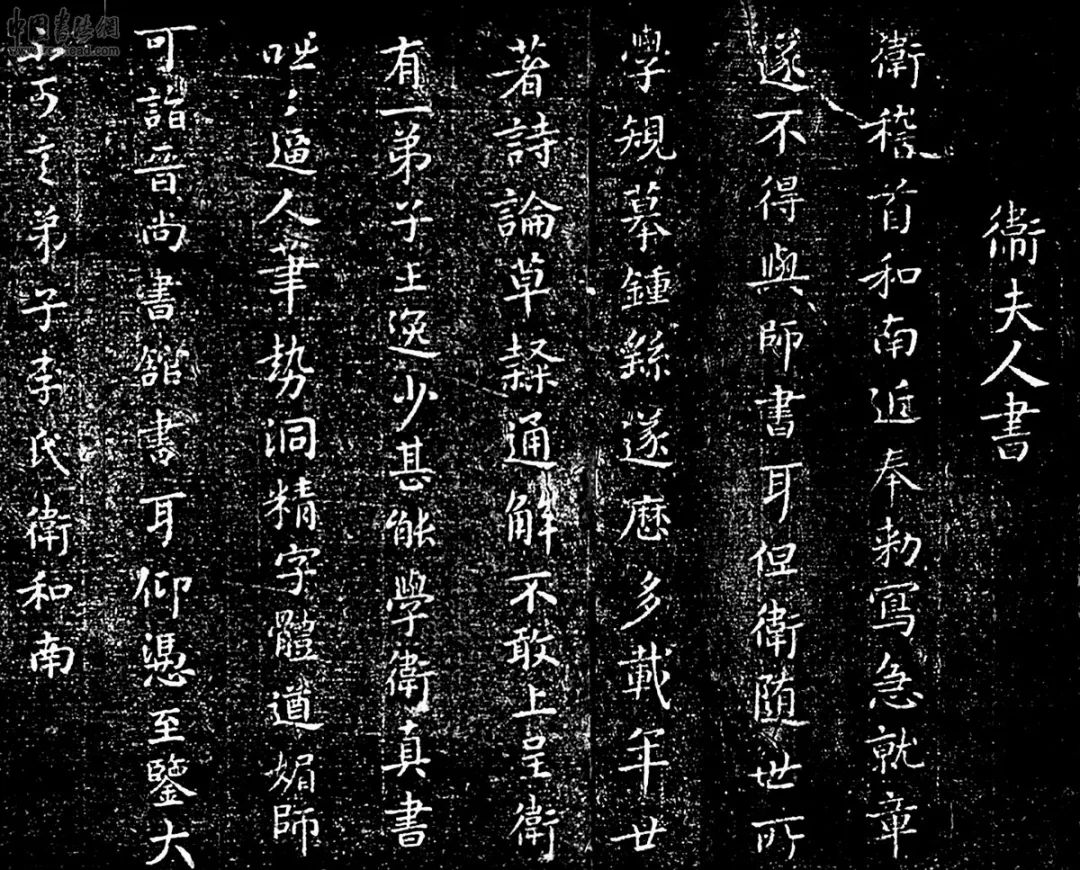 衛夫人書
衛稽首和南近奉勅寫急就章
遂不得與師書耳但衛随世所
學規摹鍾繇遂歷多載年廿
著詩論草隸通解不敢上呈衛
有一弟子王逸少甚能學衛真書
咄〻逼人筆勢洞精字體遒媚師
可詣晉尚書館書耳仰憑至鑒大
不可言弟子李氏衛和南
中国書法網